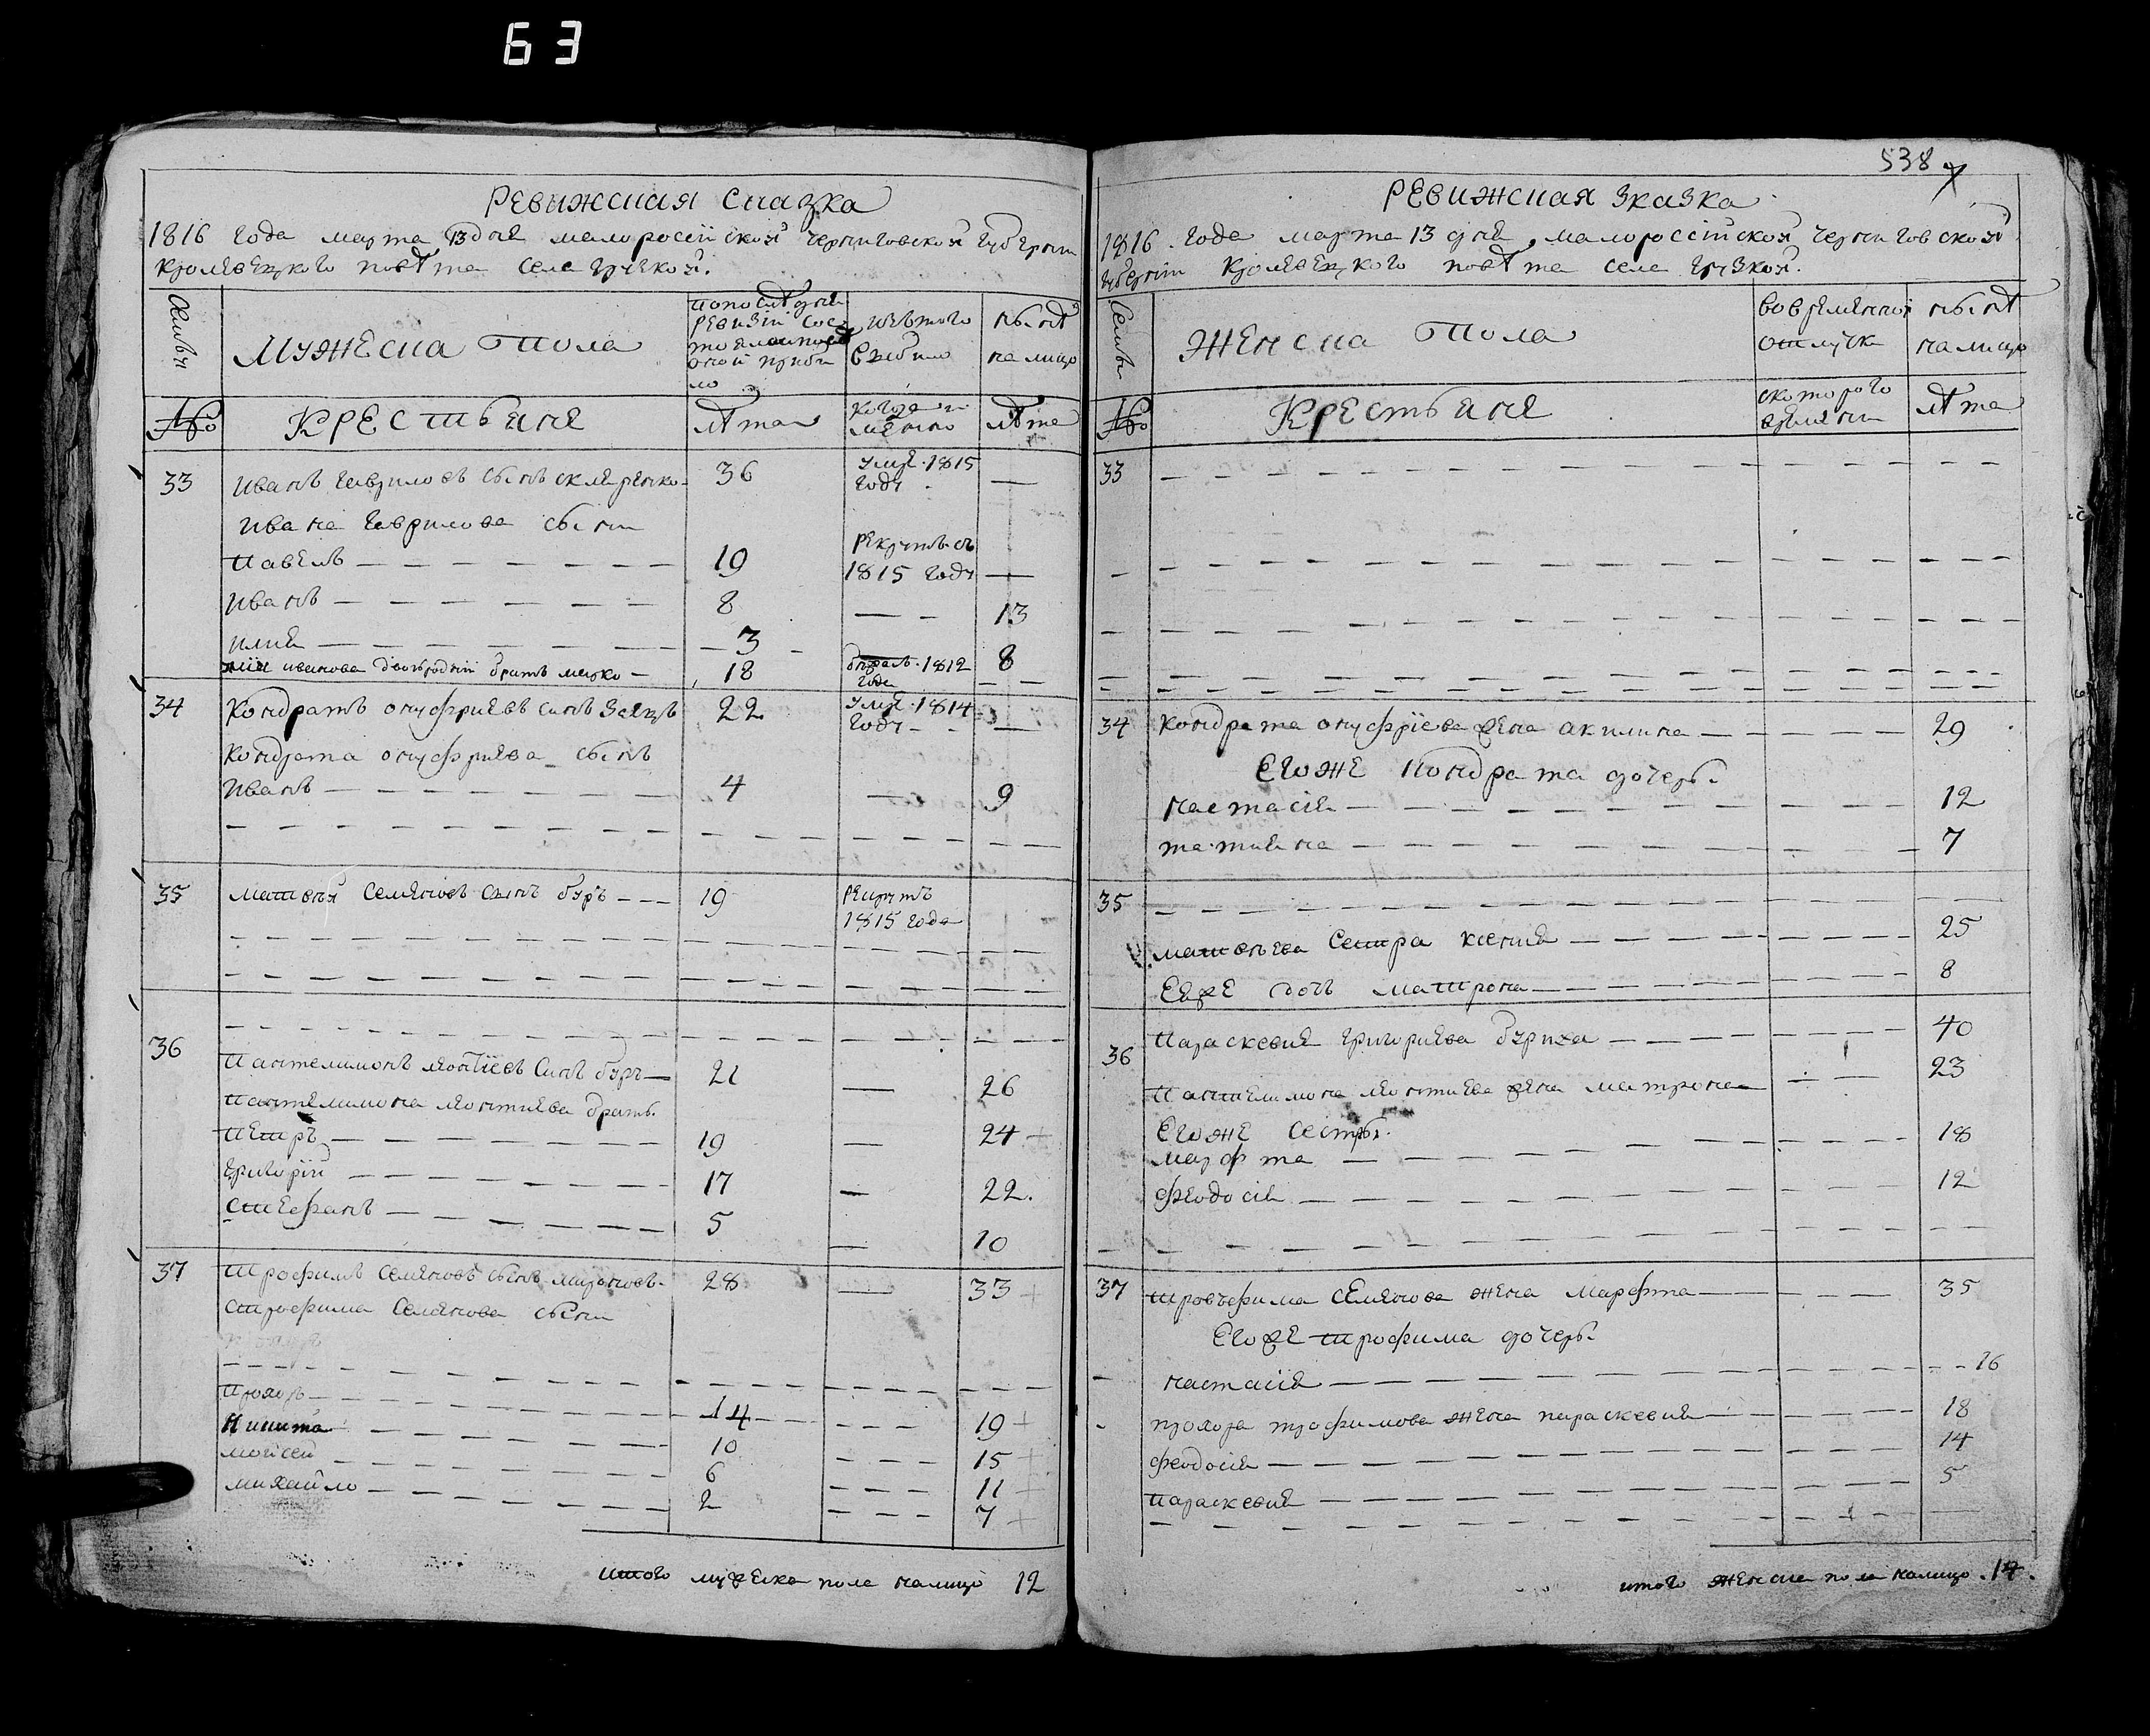 63
РЕВИЖСКАЯ Сказка
1816 года марта 13 дня малоросіиской черниговской губерніи
кролевецкого повѣта села грузкой.
Семьи
МУЖЕСКА ПОЛА
По последней ревизіи состояло и после оной прибыло
изъ того выбыло
нынѣ на лицо
№
КРЕСТЬЯНЕ
лѣта
когда именно
лѣта
33 иванъ гаврилов сынъ скляренко 36 умре 1815 году —
ивана гаврилова сыни
павелъ — 19 рекрутъ въ 1815 году —
иванъ — 8 — 13
илия — 3 — 8
ивинова двоюродній братъ марко — 18 1812 года —
34 Кондратъ онуфриевъ синъ Заяцъ 22 умре 1814 году —
Кондрата онуфриева сынъ
Иванъ — 4 — 9
35 матвѣй Семеновъ сынъ буръ — 19 рекрутъ 1815 года
36
пантелимонъ леонтіевъ синъ буръ — 21 — 26
пантелимона леонтиева братъ.
петръ — 19 — 24
григорій — 17 — 22.
стефанъ — 5 — 10
37 трофимъ Семеновъ сынъ мироновъ. 28 — 33
трофима Семенова сыни
прохоръ — 14 — 19
Никита — 10 — 15
мойсей — 6 — 11
михайло — 2 — 7
итого мужеска пола налицо 12
538
РЕВИЖСКАЯ ЗКАЗКА
1816 года марта 13 дня малороссійской черниговской
губерніи кролевецкого повѣта села грузкой.
Семьи
ЖЕНСКА ПОЛА
во временной отлучкѣ
нынѣ налицо
№
КРЕСТЬЯНЕ
скоторого времени
лѣта
33
34 кондрата онуфріева жена акилина — 29
ЕГОЖЕ Кондрата дочери.
настасія — 12
татияна — 7
35
матвѣева Сестра ксения — 25
ЕЯЖЕ дочь матрона — 8
36 Параскевия григориева буриха — 40
Пантелимона леонтиева жена матрона 23
ЕГОЖЕ Сестры.
марфта — 18
феодосія — 12
37 трофима СЕМЕНОВА жена марфта — 35
ЕГОЖЕ трофима дочери.
настасія — 16
прохора трофимова жена параскевия — 18
феодосія — 14
Параскевия — 5
итого женска пола налицо. 14.